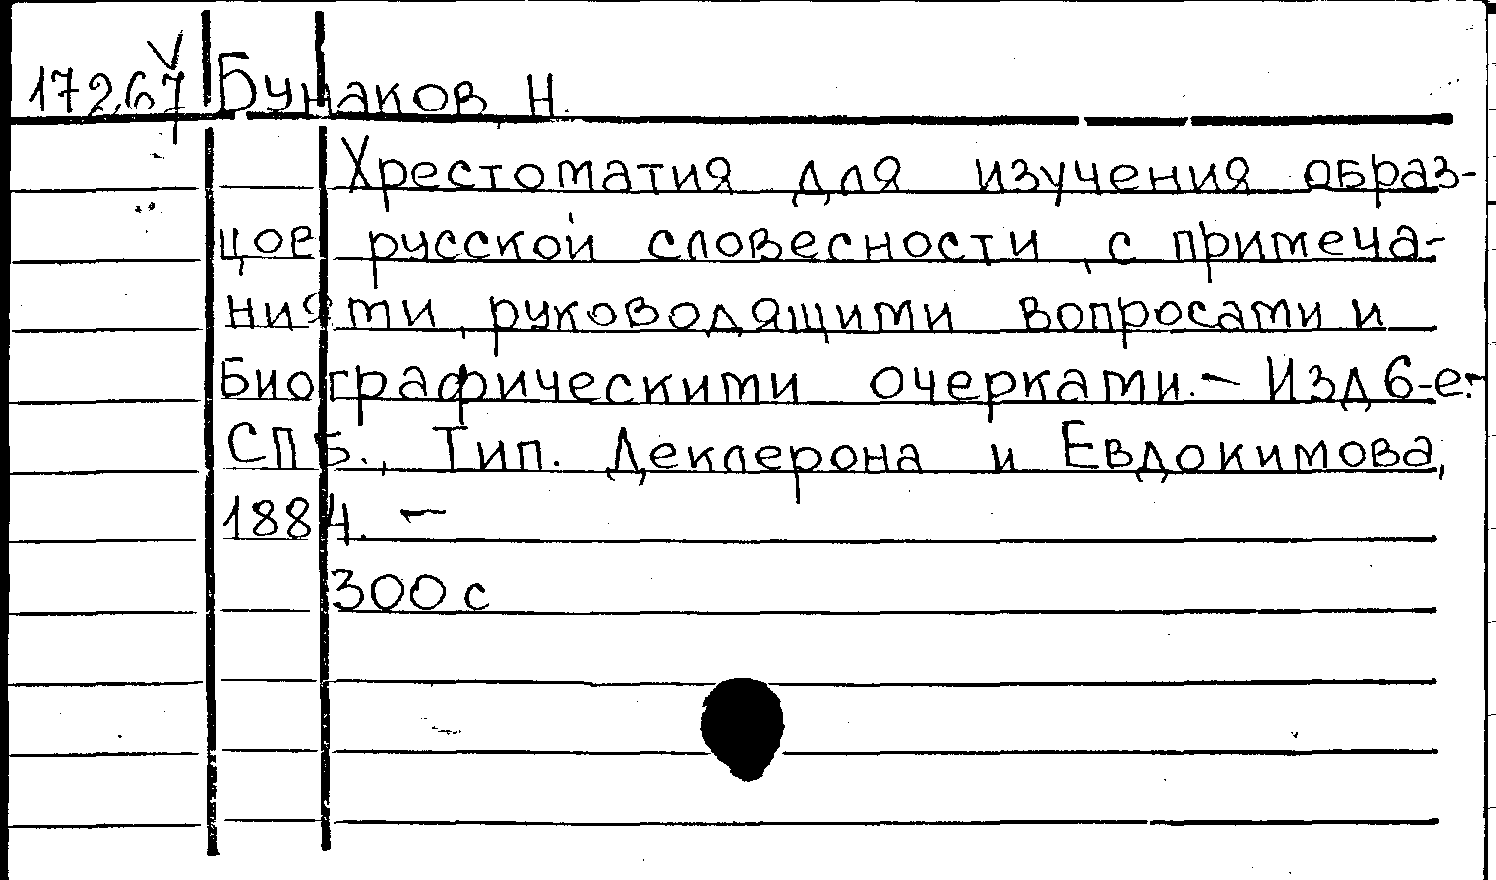 17267 V Бунаков, Н.
Хрестоматия для изучения образ-
цов русской словесности, с примеча-
ниями, руководящими вопросами и
биографическими очерками. - Изд 6-е. -
СПБ., Тип. Деклерона и Евдокимова,
1884. -
300 с